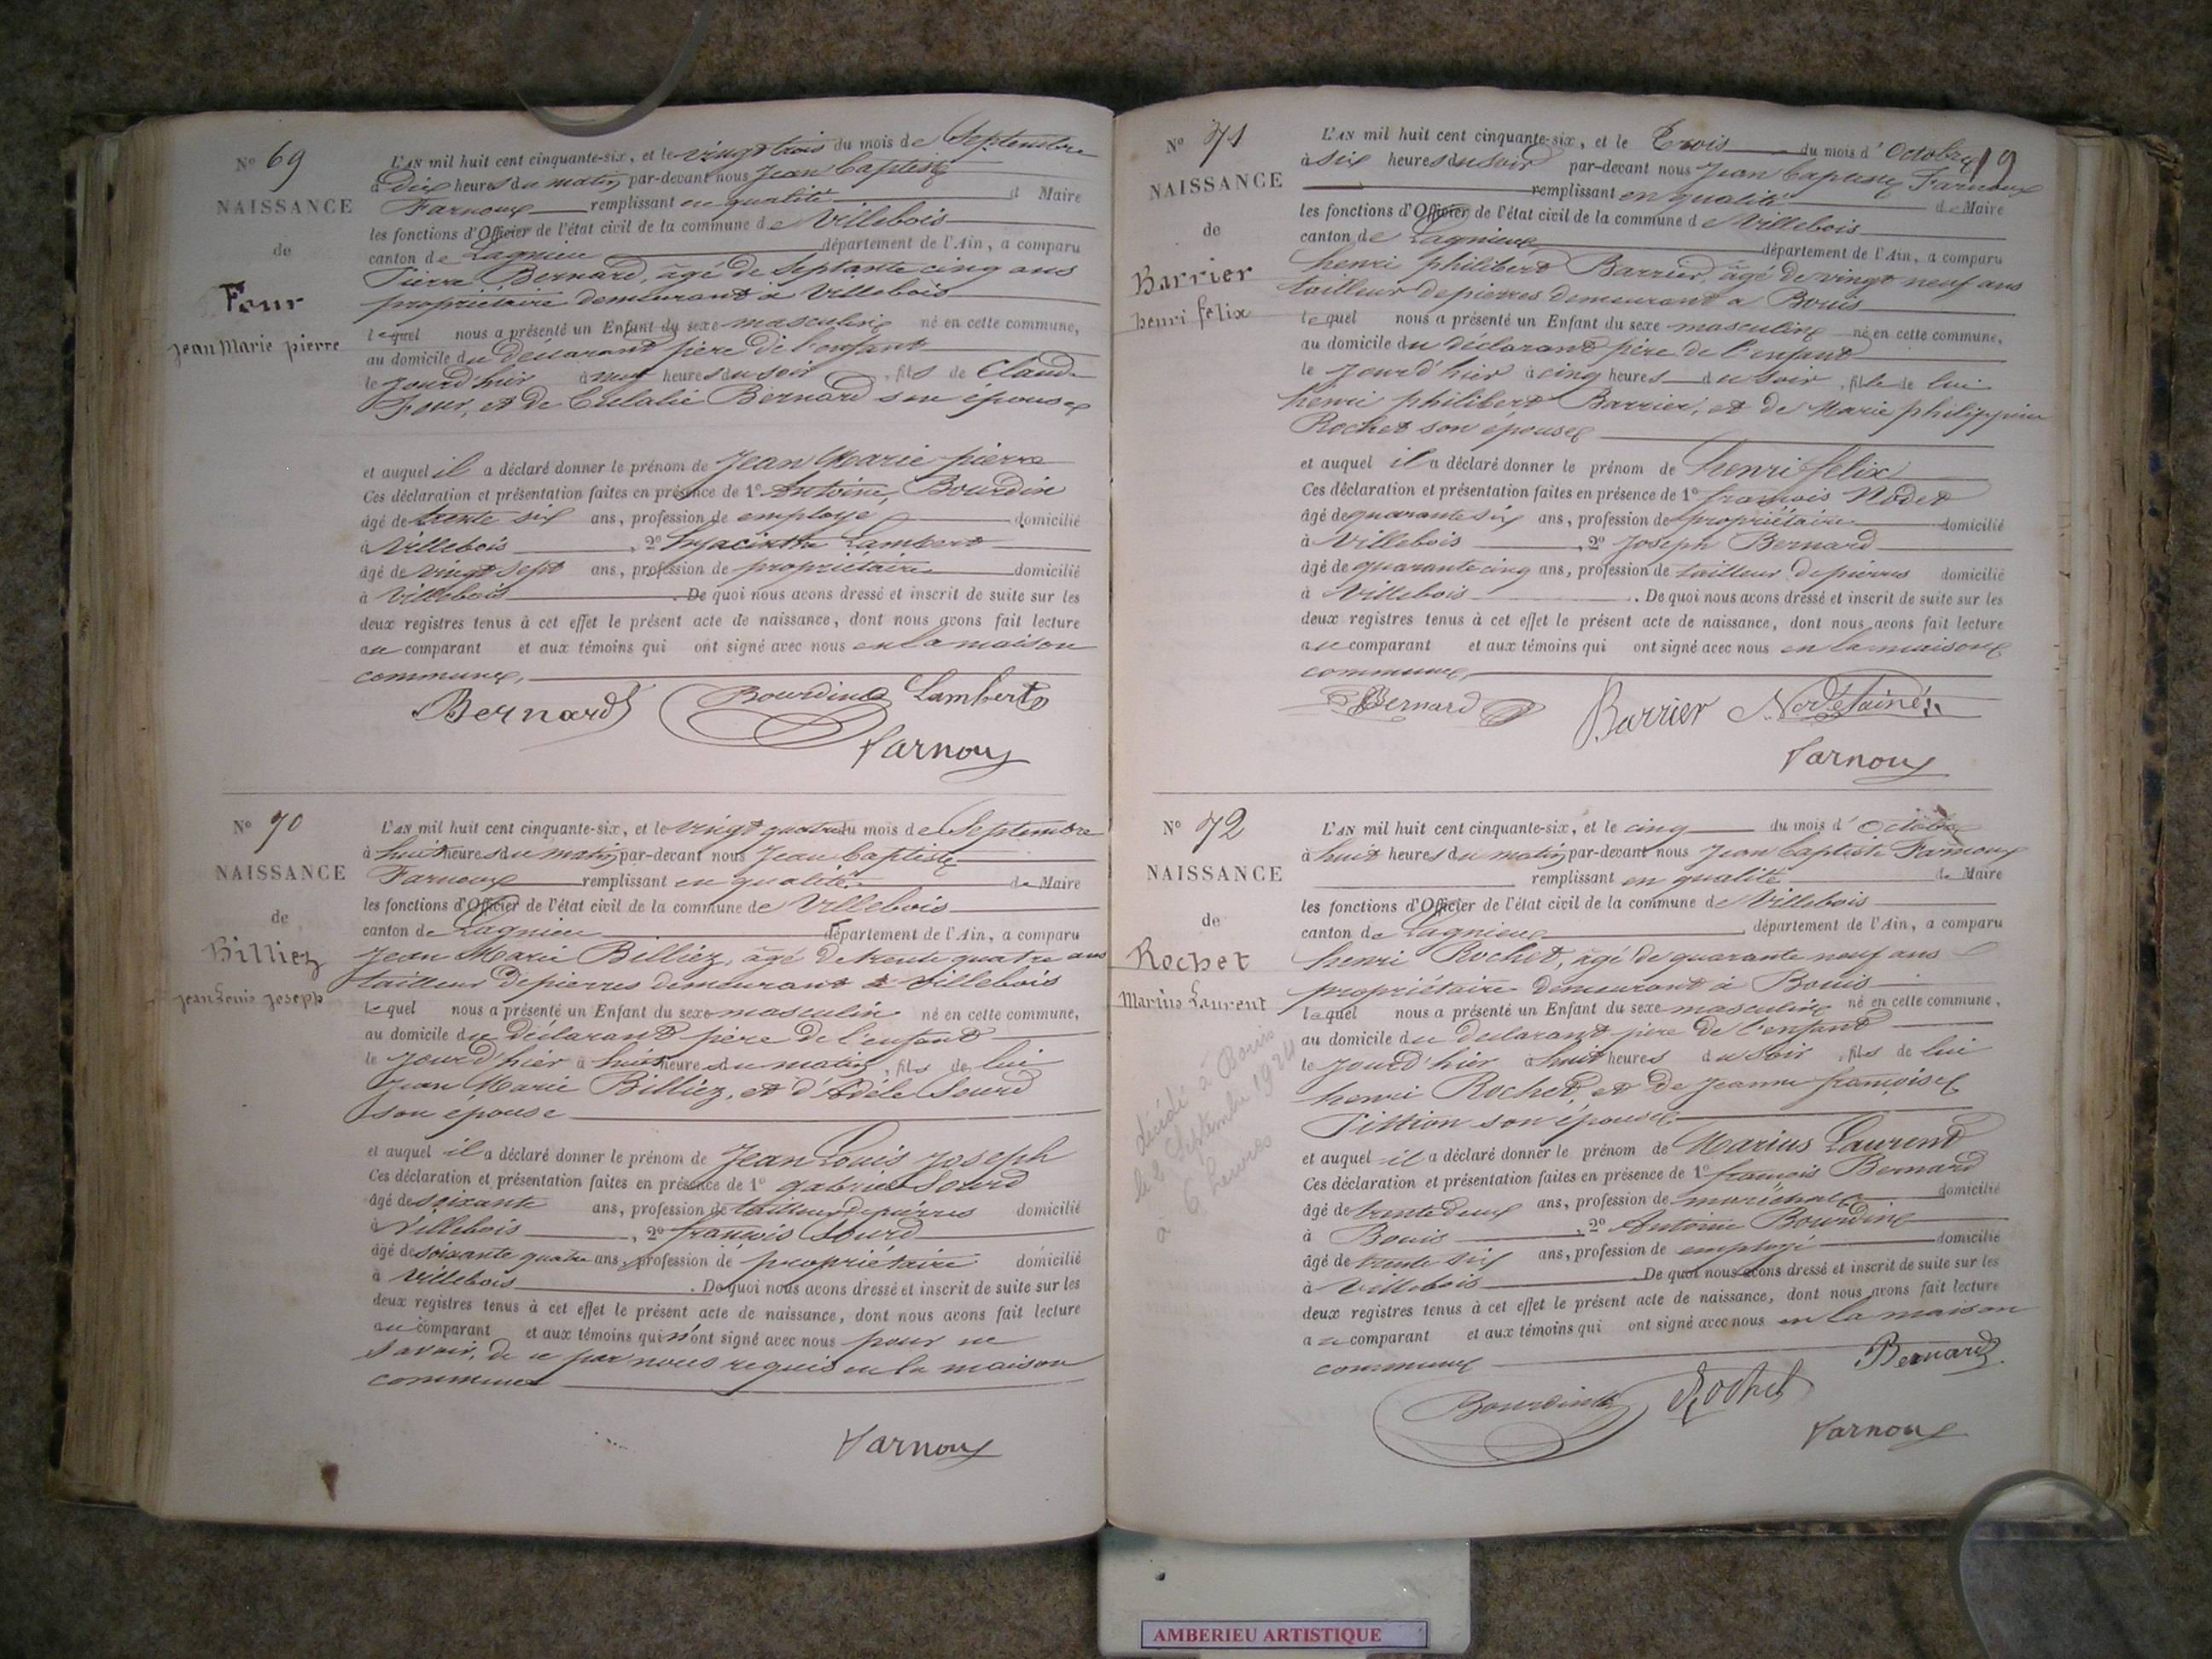 Nº 69
NAISSANCE
de
Four
Jean Marie pierre
L'AN mil huit cent cinquante-six, et le vingt trois du mois de Septembre
à Dix heures du matin par-devant nous Jean baptiste
Farnoux remplissant en qualité d Maire
les fonctions d'Officier de l'état civil de la commune de Villebois
canton de Lagnieu département de l'Ain, a comparu
Pierre Bernard, âgé de Septante cinq ans
propriétaire demeurant à Villebois
lequel nous a présenté un Enfant du sexe masculin né en cette commune,
au domicile du déclarant père de l'enfant
le jourd'hier à neuf heures du soir, fils de Claude
Four, et de Eulalie Bernard son épouse
et auquel il a déclaré donner le prénom de Jean Marie pierre
Ces déclaration et présentation faites en présence de 1º Antoine Bourdin
âgé de trente six ans, profession de employé domicilié
à Villebois, 2º hyacinthe Lambert
âgé de vingt sept ans, profession de propriétaire domicilié
à Villebois. De quoi nous avons dressé et inscrit de suite sur les
deux registres tenus à cet effet le présent acte de naissance, dont nous avons fait lecture
au comparant et aux témoins qui ont signé avec nous en la maison
commune,
Bernard Bourdin Lambert
Farnoux
Nº 70
NAISSANCE
de
Billiez
Jean Louis Joseph
L'AN mil huit cent cinquante-six, et le vingt quatre du mois de Septembre
à huit heures du matin par-devant nous Jean baptiste
Farnoux remplissant en qualité de Maire
les fonctions d'Officier de l'état civil de la commune de Villebois
canton de Lagnieu département de l'Ain, a comparu
Jean Marie Billiez, âgé de trente quatre ans
tailleur de pierres demeurant à Villebois
lequel nous a présenté un Enfant du sexe masculin né en cette commune,
au domicile du déclarant père de l'enfant
le jourd'hier à huit heures du matin, fils de lui
Jean Marie Billiez, et d'Adèle Sourd
son épouse
et auquel il a déclaré donner le prénom de Jean Louis Joseph
Ces déclaration et présentation faites en présence de 1º gabriel Sourd
âgé de soixante ans, profession de tailleur de pierres domicilié
à Villebois, 2º françois Sourd
âgé de soixante quatre ans, profession de propriétaire domicilié
à Villebois. De quoi nous avons dressé et inscrit de suite sur les
deux registres tenus à cet effet le présent acte de naissance, dont nous avons fait lecture
au comparant et aux témoins qui n'ont signé avec nous pour ne
savoir, de ce par nous requis en la maison
commune
Farnoux
19
Nº 71
NAISSANCE
de
Barrier
henri félix
L'AN mil huit cent cinquante-six, et le Trois du mois d'Octobre
à six heures du soir par-devant nous Jean baptiste Farnoux
remplissant en qualité de Maire
les fonctions d'Officier de l'état civil de la commune de Villebois
canton de Lagnieux département de l'Ain, a comparu
henri philibert Barrier, âgé de vingt neuf ans
tailleur de pierres demeurant a Bouis
lequel nous a présenté un Enfant du sexe masculin né en cette commune,
au domicile du déclarant père de l'enfant
le jourd'hier à cinq heures du soir, fils de lui
henri philibert Barrier, et de Marie philippine
Rochet son épouse
et auquel il a déclaré donner le prénom de henri félix
Ces déclaration et présentation faites en présence de 1º françois Nodet
âgé de quarante six ans, profession de propriétaire domicilié
à Villebois, 2º Joseph Bernard
âgé de quarante cinq ans, profession de tailleur de pierres domicilié
à Villebois. De quoi nous avons dressé et inscrit de suite sur les
deux registres tenus à cet effet le présent acte de naissance, dont nous avons fait lecture
au comparant et aux témoins qui ont signé avec nous en la maison
commune,
Bernard Barrier Nodet ainé
Farnoux
Nº 72
NAISSANCE
de
Rochet
Marius Laurent
décédé à Bouis
le 2 Septembre 1924
à 6 heures
L'AN mil huit cent cinquante-six, et le cinq du mois d'Octobre
à huit heures du matin par-devant nous Jean baptiste Farnoux
remplissant en qualité de Maire
les fonctions d'Officier de l'état civil de la commune de Villebois
canton de Lagnieu département de l'Ain, a comparu
henri Rochet, âgé de quarante neuf ans
propriétaire demeurant à Bouis
lequel nous a présenté un Enfant du sexe masculin né en cette commune,
au domicile du déclarant père de l'enfant
le jourd'hier à huit heures du soir, fils de lui
henri Rochet, et de Jeanne françoise
Tittion son épouse
et auquel il a déclaré donner le prénom de Marius Laurent
Ces déclaration et présentation faites en présence de 1º françois Bernard
âgé de trente deux ans, profession de maréchal domicilié
à Bouis, 2º Antoine Bourdin
âgé de trente six ans, profession de employé domicilié
à Villebois De quoi nous avons dressé et inscrit de suite sur les
deux registres tenus à cet effet le présent acte de naissance, dont nous avons fait lecture
au comparant et aux témoins qui ont signé avec nous en la maison
commune
Bernard
Bourdin Rochet
Farnoux
AMBERIEU ARTISTIQUE